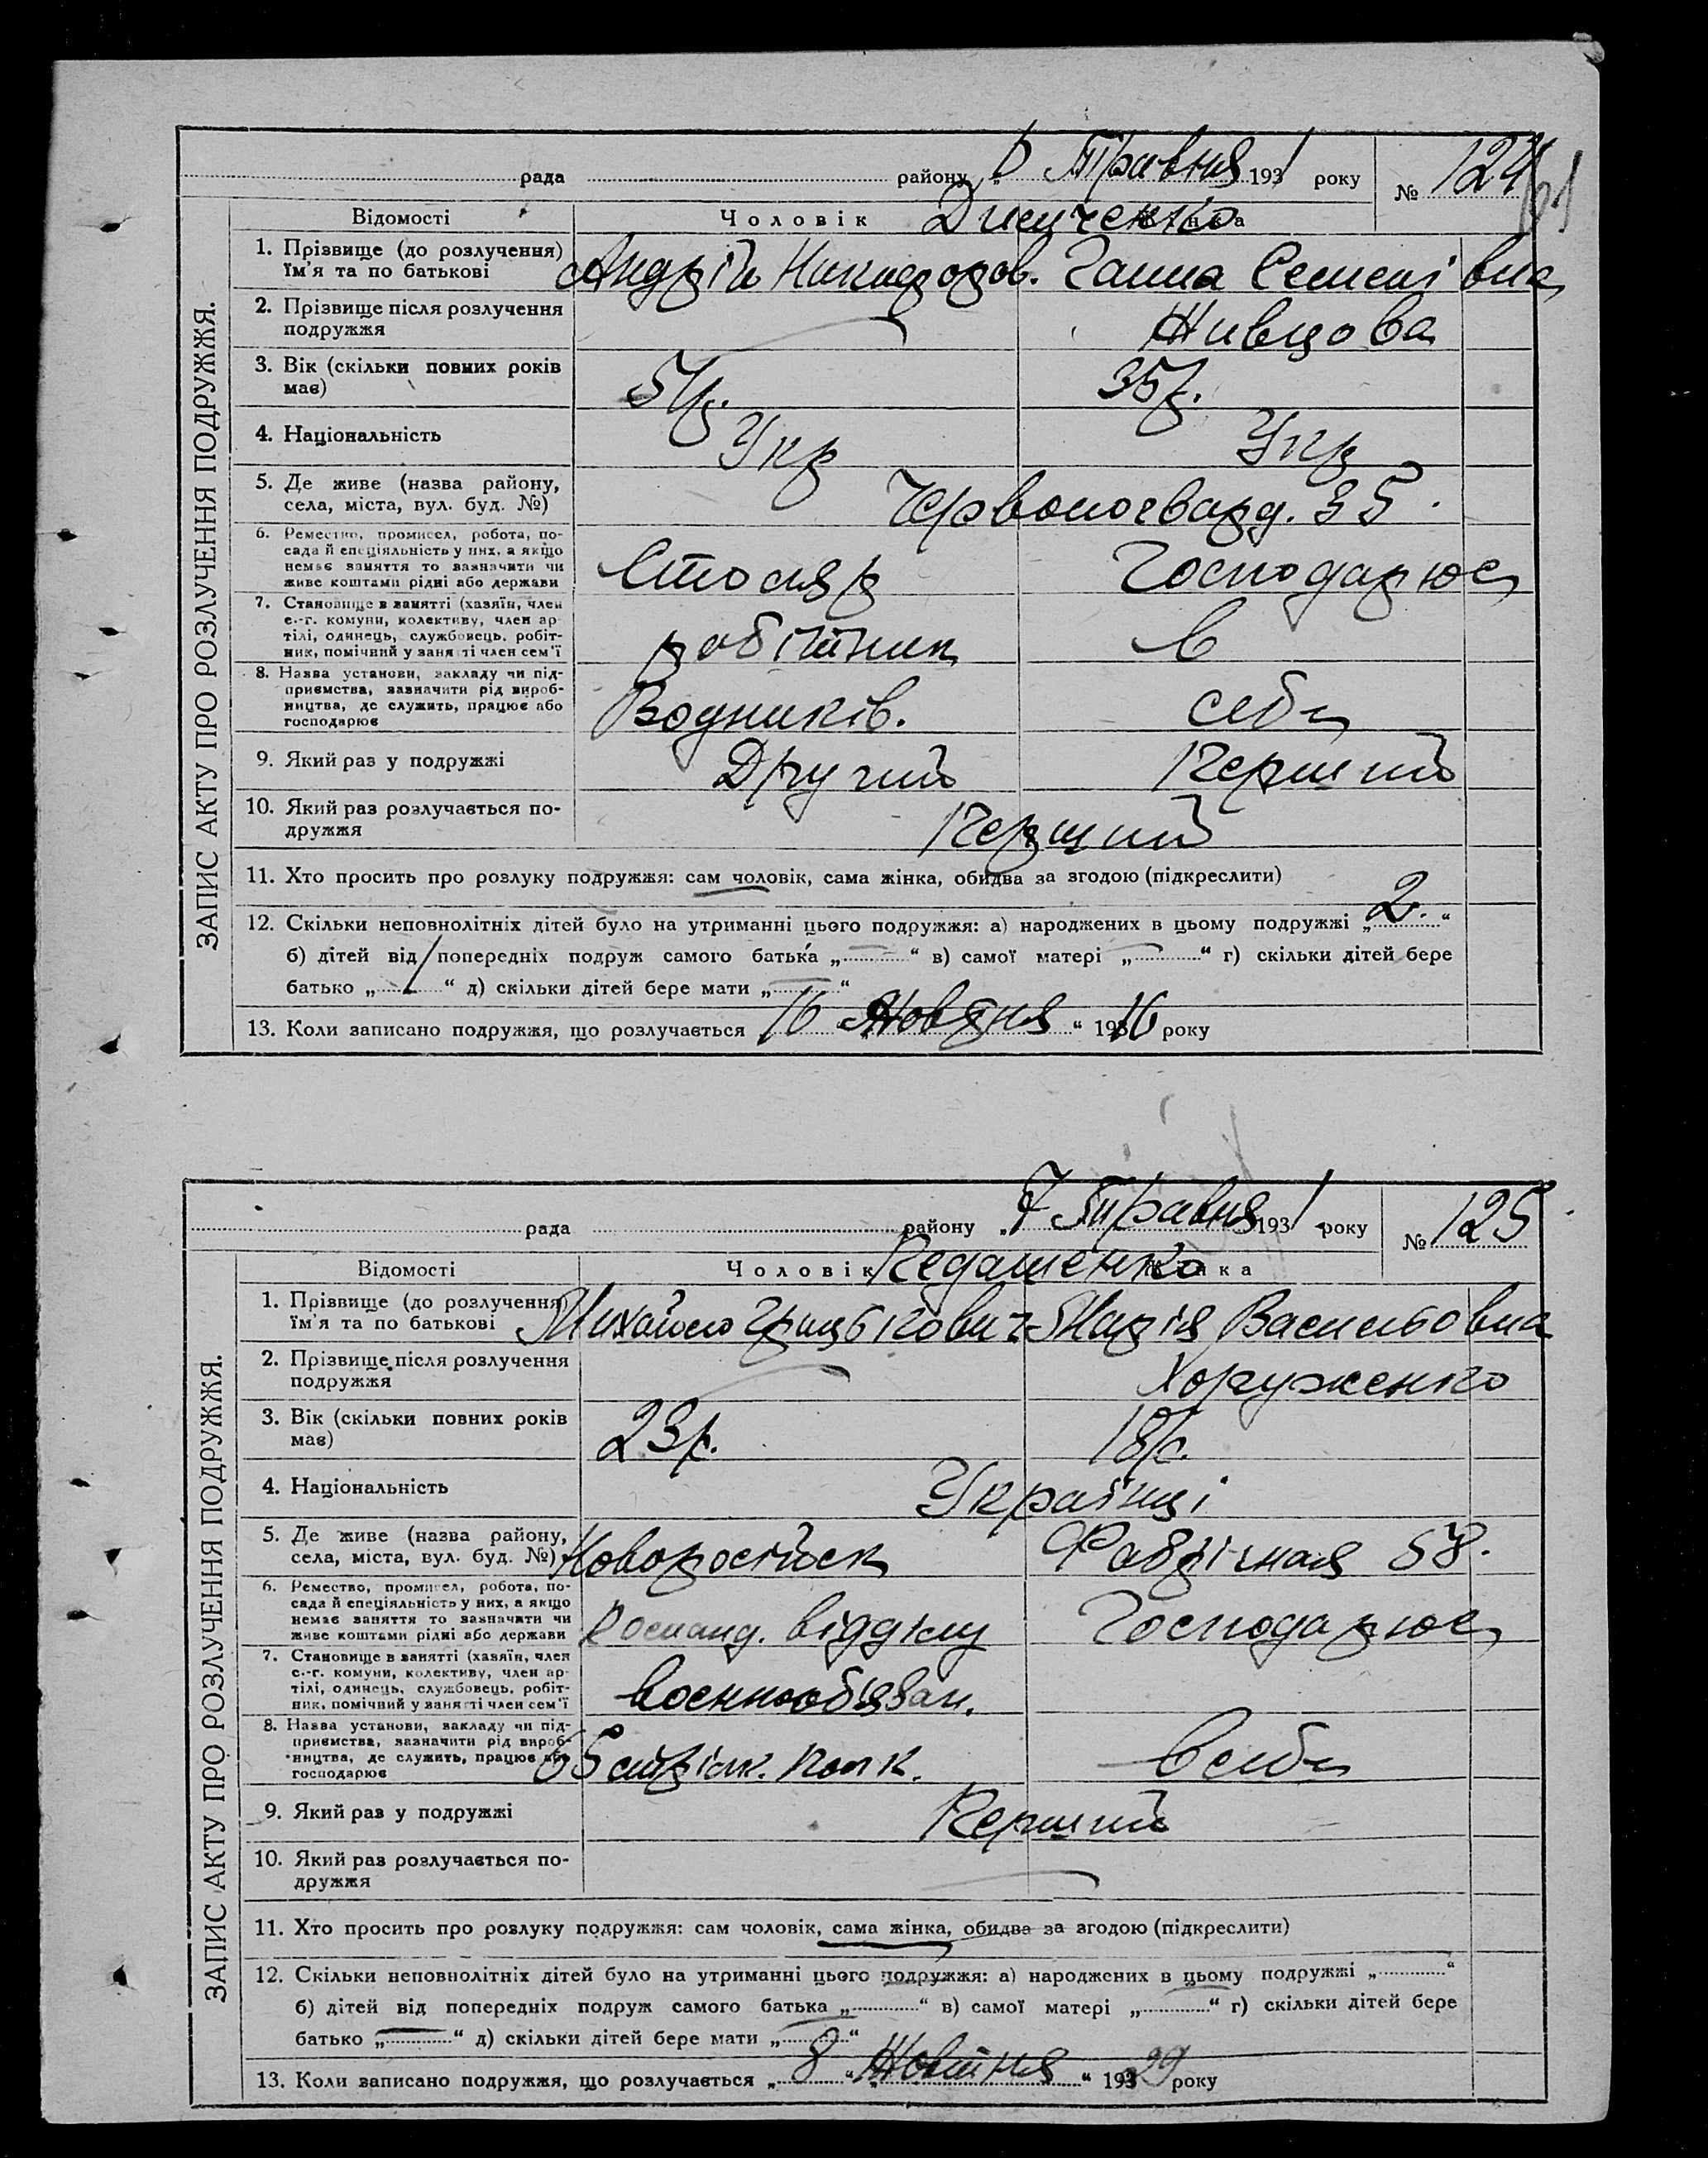 рада району „ Травня 1931 року № 124
61
ЗАПИС АКТУ ПРО РОЗЛУЧЕННЯ ПОДРУЖЖЯ.
Відомості Чоловік Жінка
1. Прізвище (до розлучення)
їм'я та по батькові
Андрій Никифоров. Ганна Семенівна
2. Прізвище після розлучення
подружжя
Живцова
3. Вік (скільки повних років
має)
51р. 35р.
4. Національність Укр Укр
5. Де живе (назва району,
села, міста, вул. буд. №)
Червоногвард. 35
6. Ремество, промисел, робота, по-
сада й спеціяльність у них, а якщо
немає заняття то зазначити чи
живе коштами рідні або держави
Столяр Господарює
7. Становище в занятті (хазяїн, член
с.-г. комуни, колективу, член ар-
тілі, одинець, службовець, робіт-
ник, помічний у занятті член сем'ї
робітник в
8. Назва установи, закладу чи під-
приємства, зазначити рід вироб-
ництва, де служить, працює або
господарює
Водників. себе
9. Який раз у подружжі Другий Перший
10. Який раз розлучається по-
дружжя
Перший
11. Хто просить про розлуку подружжя: сам чоловік, сама жінка, обидва за згодою (підкреслити)
12. Скільки неповнолітніх дітей було на утриманні цього подружжя: а) народжених в цьому подружжі „2.“
б) дітей від попередніх подруж самого батька „ “ в) самої матері „ “ г) скільки дітей бере
батько „ “ д) скільки дітей бере мати „ “
13. Коли записано подружжя, що розлучається 16 Жовтня “ 19316 року
рада району „7 Травня 1931 року № 125
ЗАПИС АКТУ ПРО РОЗЛУЧЕННЯ ПОДРУЖЖЯ.
Відомості Чоловік Жінка
Педашенко
1. Прізвище (до розлучення)
їм'я та по батькові
Михайло Григорович Марія Васильовна
2. Прізвище після розлучення
подружжя
Хоруженко
3. Вік (скільки повних років
має)
23р. 18р.
4. Національність Українці
5. Де живе (назва району,
села, міста, вул. буд. №)
Новоросійськ Фабрічная 58.
6. Ремество, промисел, робота, по-
сада й спеціяльність у них, а якщо
немає заняття то зазначити чи
живе коштами рідні або держави
Команд. відділу Господарює
7. Становище в занятті (хазяїн, член
с.-г. комуни, колективу, член ар-
тілі, одинець, службовець, робіт-
ник, помічний у занятті член сем'ї
воєннообязан.
8. Назва установи, закладу чи під-
приємства, зазначити рід вироб-
ництва, де служить, працює або
господарює
65 стрілк. полк. в себе
9. Який раз у подружжі Перший
10. Який раз розлучається по-
дружжя
11. Хто просить про розлуку подружжя: сам чоловік, сама жінка, обидва за згодою (підкреслити)
12. Скільки неповнолітніх дітей було на утриманні цього подружжя: а) народжених в цьому подружжі „ “
б) дітей від попередніх подруж самого батька „ “ в) самої матері „ “ г) скільки дітей бере
батько „ “ д) скільки дітей бере мати „ “
13. Коли записано подружжя, що розлучається „8“ „Жовтня “ 19329 року